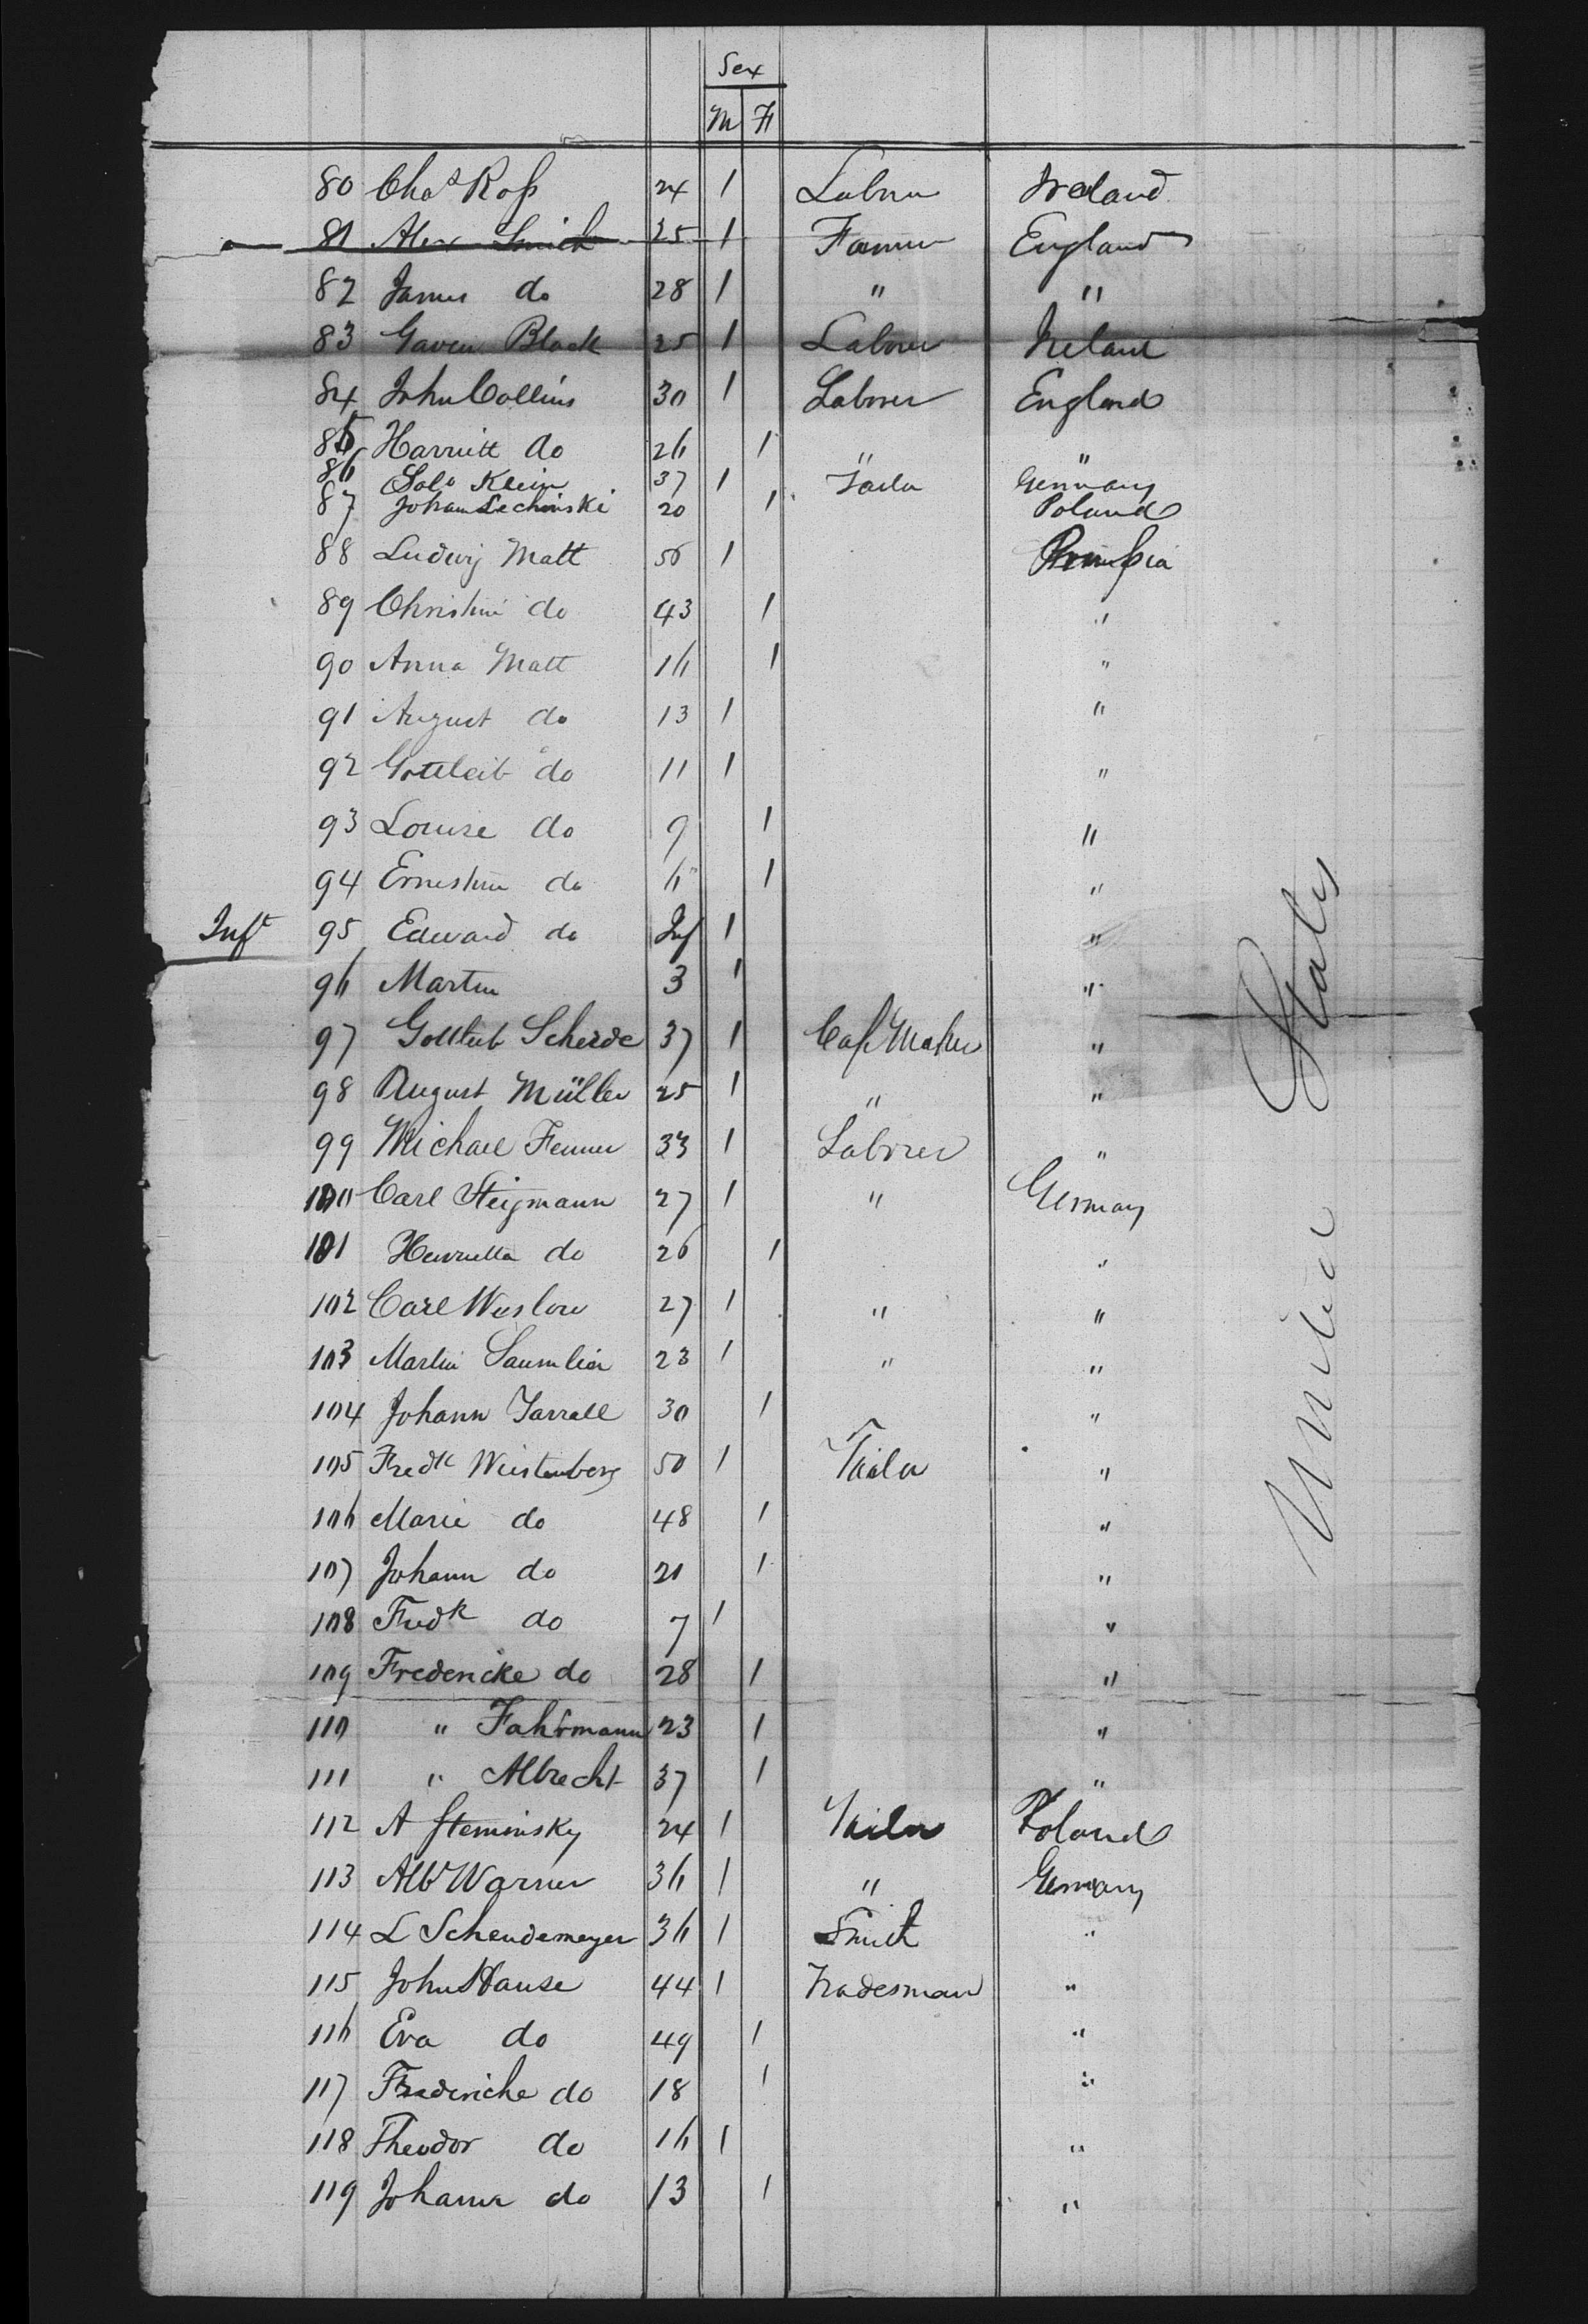 Sex
M F
80 Chas Ross 24 1 Labrer Ireland
81 Alex Smith 25 1 Farmer England
82 James do 28 1 " "
83 Gaven Black 25 1 Laborer Ireland
84 John Collins 30 1 Laborer England
85 Harriett do 26 1 " "
86 Solo Klein 37 1 Tailor Germany
87 Johann Lechinski 20 1 Poland
88 Ludwig Matt 56 1 Prussia
89 Christine do 43 1 "
90 Anna Matt 16 1 "
91 August do 13 1 "
92 Gottleib do 11 1 "
93 Louise do 9 1 "
94 Ernestine do 6 1 "
Inft 95 Edward do Inf 1 "
96 Martin 3 1 "
97 Gottlieb Scherde 37 1 Cap Maker "
98 August Müller 25 1 " "
99 Michael Fenner 33 1 Laborer "
100 Carl Steigmann 27 1 " Germany
101 Henrietta do 26 1 "
102 Carl Wuslow 27 1 " "
103 Martin 23 1 " "
104 Johann 30 1 "
105 Fredk Wustenberg 50 1 Tailor "
106 Marie do 48 1 "
107 Johann do 21 1 "
108 Fredk do 7 1 "
109 Fredericke do 28 1 "
110 " Fahrmann 23 1 "
111 " Albrecht 37 1 "
112 A Steminsky 24 1 Tailor Poland
113 Albt Warner 36 1 " Germany
114 L Scheudemeyer 36 1 Smith "
115 John Hause 44 1 Tradesman "
116 Eva do 49 1 "
117 Frederiche do 18 1 "
118 Theodor do 16 1 "
119 Johann do 13 1 "
United States